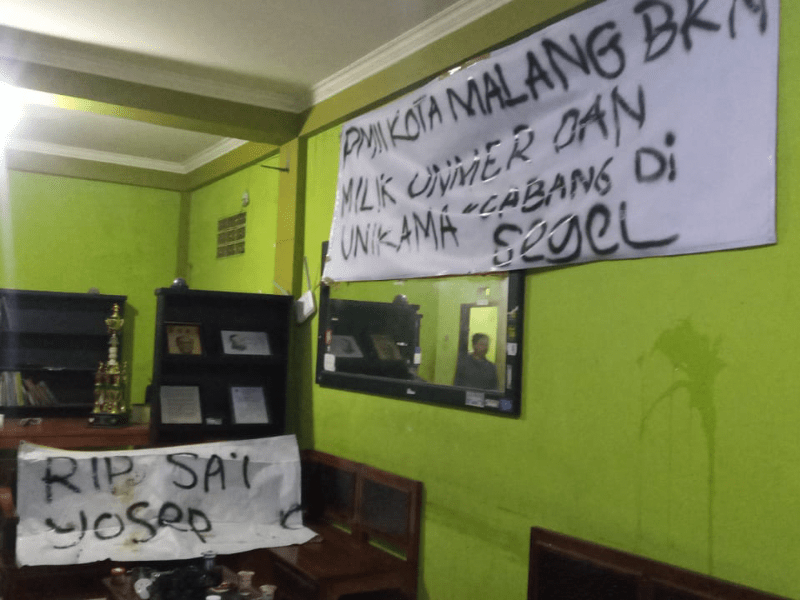 PMII KOTA MALANG BKN
MILIK UNMER DAN
UNIKAMA "CABANG Di
SegeL
RIP SA'I
yosep